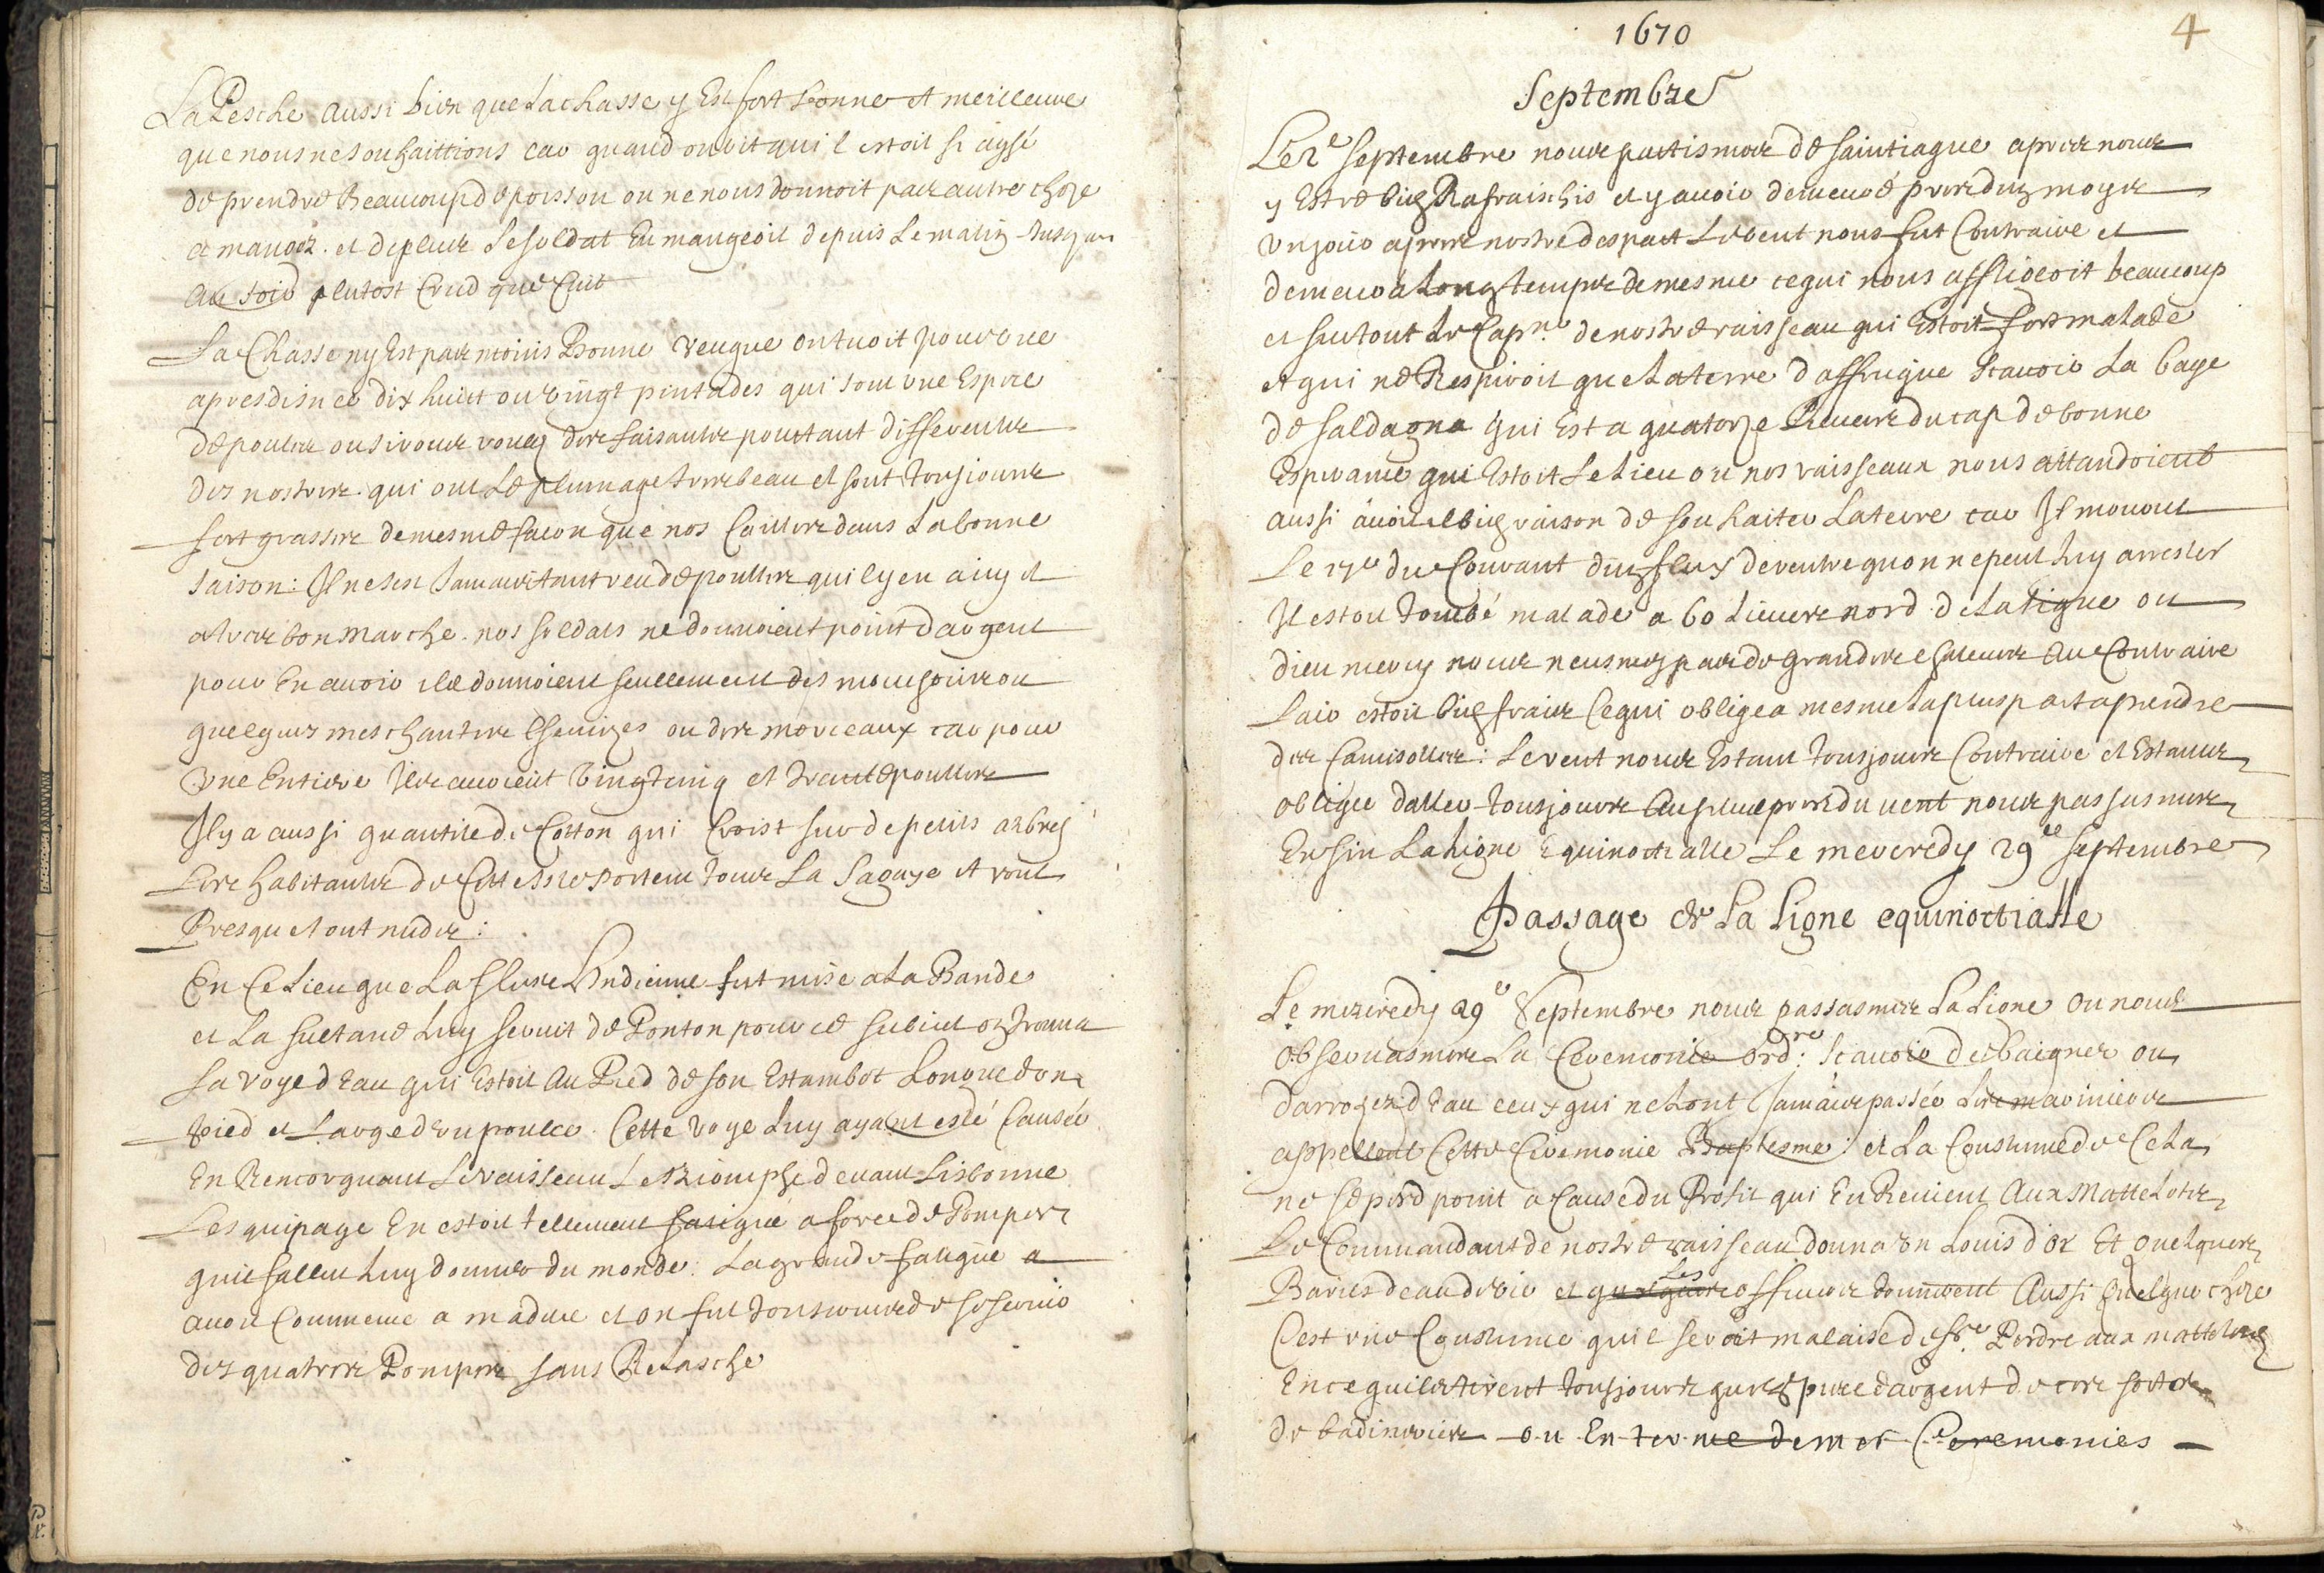 La Pesche aussi bien que La chasse y Est fort bonne et meilleure
que nous ne souhaittions car quand on vit quil estoit si aysé
de prendre Beaucoup de poisson on ne nous donnoit pas autre chose
a manger. et depluis Le soldat En mangeoit depuis Le matin Jusques
Au soir plutost Crud que Cuit
La Chasse ny Est pas moins Bonne veu que on tuoit pour une
apresdisnee dix huict ou vingt pintades qui sont une Espece
de poules ou si vous voulez des faisantes pourtant differentes
des nostres. qui ont Le plumage tres beau et sont Tousjours
fort grasses de mesme facon que nos Cailles dans La bonne
saison: Il ne sest Jamais tant veu de poulles quil y en a icy et
a tres bon marche. nos soldats ne donnoient point dargent
pour En avoir ils donnoient seullement des mouchoirs ou
quelques meschantes Chemizes ou des morceaux car pour
Une Entiere Ils avoient Vingt cinq et trente poulles
Il y a aussi quantite de Cotton qui Croist sur de petits arbres
Les habitants de Cette Isle portent Tous La Sagaye et vont
Presque tout nuds:
En Ce Lieu que La flute Lindienne fut mise a La Bande
et La sultane Luy servit de Ponton pour ce subiect on Trouva
sa voye dEau qui Estoit Au Pied de son Estambot Longue dun
Pied et Large dun poulce. Cette voye Luy ayant esté Causée
En Remorquant Le vaisseau Le Triomphe devant Lisbonne
Lesquipage En estoit tellement fatigué a force de Pomper
quil fallut Luy donner du monde. La grande fatigue a
avoit Commence a madere et on fut Tousjours de se servir
des quatres Pompes sans Relasche
1670
4
Septembre
Le 2e septembre nous partismes de saintiague apres nous
y Estre bien Rafraischis et y avoir demeuré pres dun moys
Un jour apres nostre despart Le vent nous fut Contraire et
demeura Long temps de mesme ce qui nous affligeoit beaucoup
et surtout Le Capne. de nostre vaisseau qui Estoit fort malade
et qui ne Respiroit que La terre daffrique scavoir La baye
de saldagna qui Est a quatorze Lieues du cap de bonne
Esperance qui Estoit Le Lieu ou nos vaisseaux nous attandoient
aussi avoit il bien raison de souhaiter La terre car Il mourut
Le 17e du Courant dun flux de ventre quon ne peut Luy arrester
Il estoit Tombé malade a 60 Lieues nord de La Ligne ou
dieu mercy nous neusmes pas de grandes chaleurs Au Contraire
Lair estoit bien frais Ce qui obligea mesme La plus part a prendre
des Camisolles: Le vent nous Estant Tousjours Contraire et Estants
obligée daller Tousjours Au plus pres du vent nous passasmes
Enfin La Ligne Equinoctialle Le mecredy 29e septembre
Passage de La Ligne equinoctialle
Le mecredy 29e Septembre nous passasmes La Ligne Ou nous
observasmes La Ceremonie ordre: scavoir de Baigner ou
darrozer dEau ceux qui ne Lont Jamais passée Les mariniers
appellent Cette Ceremonie Baptesme: et La Coustume de Cela
ne se perd point a Cause du Profit qui En Revient Aux Mattelots
Le Commandant de nostre vaisseau donna Un Louis dor Et quelques
Barils deau de vie et quelques Les officiers donnerent Aussi quelque chose
Cest une Coustume quil seroit malaise de fre. Perdre aux mattelots
En ce quils tirent Tousjours quelq piece dargent de ces sortes
de badineries ou En terme de mer Ceremonies